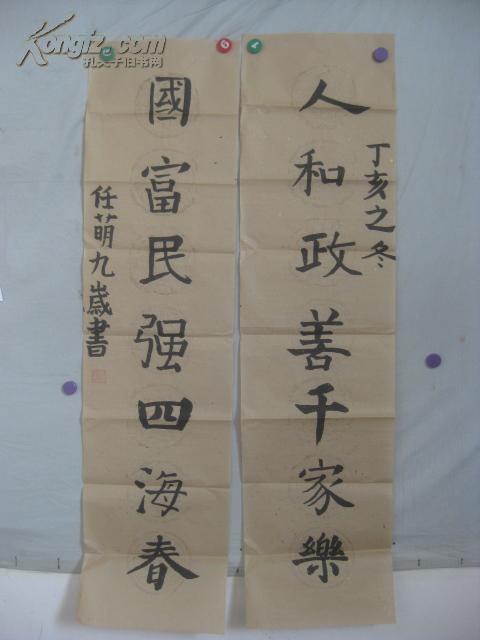 人和政善千家樂
丁亥之冬
國富民强四海春
任萌九歲書
Kongfz.com
孔夫子旧书网